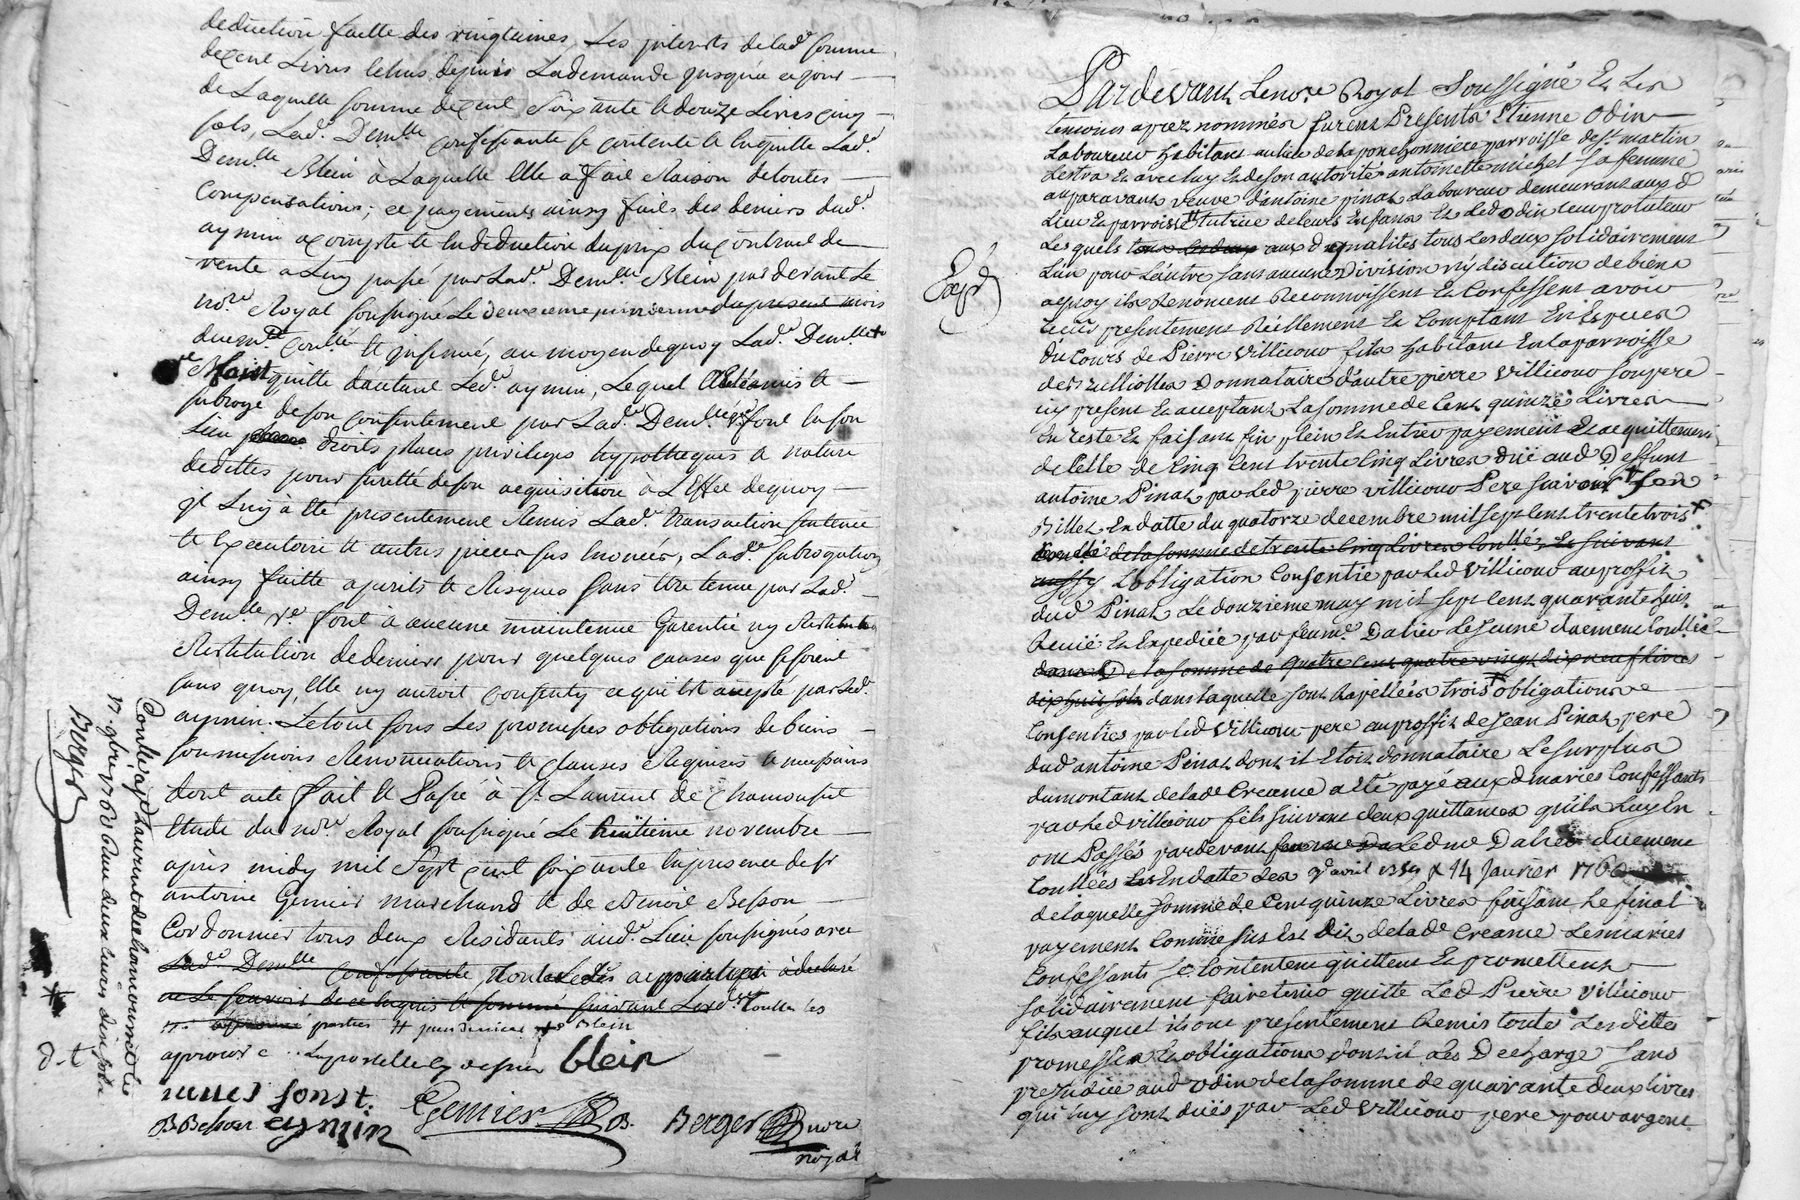 deduction faitte des vingtaines, Les interets delad.e somme
decent Livres Echus depuis Lademande jusqu'a cejour
de Laquelle somme decent soixante te douze Livres cinq
sols, Lad.e Dem.lle confessante se contente te enquitte Lad.e
Dem.lle Blein à Laquelle Elle a fait Raison detoutes
Compensations; ce payement ainsy fait des deniers dud.
aymin acompte te en deduction duprix du Contract de
vente a Luy passé par Lad.e Dem.lle Blein pardevant Le
no.re Royal soussigné Le deuxieme
duem.t Con.llé te insinué, au moyen dequoy Lad.e Dem.lle
quitte dautant Led. aymin, Lequel
subrogé, deson consentement par Lad.e Dem.lle v.e font en son
Lieu droits places privileges hypotheques te nature
dedettes pour suretté deson acquisition à L'Effet dequoy
il Luy à eté presentement Remis Lad.e transaction sentence
te Executoire te autres pieces sus enoncées, Lad.e subrogation
ainsy faitte aperils te Risques sans Etre tenue par Lad.e
Dem.lle v.e font à aucune maintenue Garentie ny
Restitution dedeniers pour quelques causes que se soient
sans quoy, Elle ny auroit consenty ce qui Est accepté par Led.
aymin. Letout sous Les promesses obligations de biens
soumissions Renonciations te clauses Requises te necessaires
dont acte fait te Passé à S.t Laurent de Chamousset
Etude du no.re Royal soussigné Le huitieme novembre
après midy mil sept cent soixante En presence de sr
antoine Gemier marchand te de Benoit Besson
Cordonnier tous deux Residants aud. Lieu soussignés avec
Lad.e Dem.lle confessante
parties
aprouvé Blein
blein
font.
BBesson aymin Gemier Berger nore
royal
Con.llé a S.t Laurent de chamousset Le
17 9bre 1760 Reçu deux Livres dix sols
Berger
Expéd
Pardevant Leno.re Royal Soussigné Et Les
temoins aprez nommés furent Presents Etienne Odin
Laboureur habitant aulieu de la ponchonniere parroisse de st martin
Lestra Et avec luy Et deson autorité antoinette michel sa femme
auparavant veuve d'antoine pinat Laboureur demeurant aux d
Lieu Et parroisse tutrice deleurs Enfans Et Led odin leur protuteur
Lesquels tous Les deux aux d qualités tous Lesdeux solidairement
L'un pour L'autre sans aucune Division ny discution de biens
aquoy ils Renoncent Reconnoissent Et Confessent avoir
Receu presentement Réellement Et Comptant En Especes
du Cours de Pierre Villicour fils habitant En la parroisse
des halliolles Donnataire d'autre pierre Villicour son pere
icy present Et acceptant Lasomme de Cent quinze Livres
En reste Et faisant fin plein Et Entier payement Et acquittement
de Celle de Cinq Cent trente Cinq Livres düe aud Deffunt
antoine Pinat par Led pierre villicour Pere sçavoir son
Billet En datte du quatorze decembre mil sept cent trente trois
de la somme de trente Cinq Livres Con.llé, Et suivant
aussy L'obligation Consentie par Led Villicour auproffit
dud Pinat Le douzieme may mil sept cent quarante huit
Recüe Et Expediée par feu me Dalier Lejeune duement Conllée
de la somme de quatre cent quatre vingt dix neuf livres
dix huit sols dans laquelle sont Rapellées trois obligations
Consenties par Led Villicour pere auproffit de Jean Pinat pere
dud antoine Pinat dont il Etoit donnataire Lesurplus
dumontant delad.e Creance a Eté payé aux d mariés Confessants
par Led villicour fils suivant deux quittances qu'ils Luy En
ont Passés pardevant Led me Dalier duement
Conllées En datte des avril & 14 Janvier 1760
delaquelle somme de Cent quinze Livres faisant Le final
payement Comme sus est dit delad.e Creance Lesmariés
Confessants se Contentent quittent Et promettent
solidairement faire tenir quitte Led Pierre Villicour
fils auquel ils ont presentement Remis toutes Lesdittes
promesses Et obligations dont il a Eté Decharge sans
prejudice aud odin de la somme de quarante deux livres
qui luy sont düës par Led Villicour pere pour argent